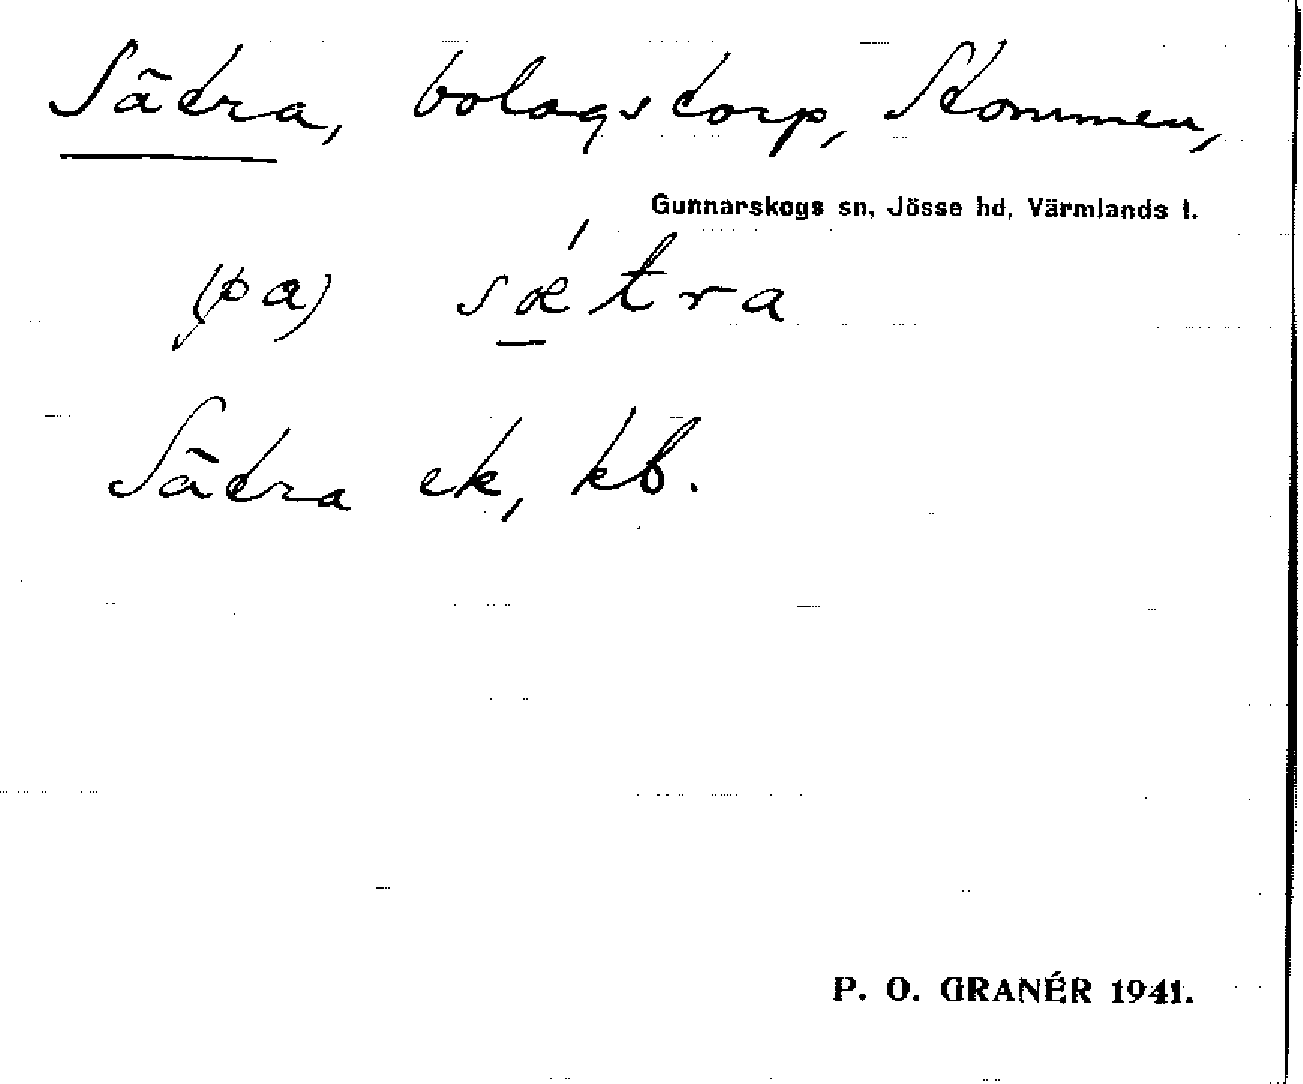 Sätra, bolagstorp, Stommen,
Gunnarskogs sn, Jösse hd, Värmlands l.
(pa) sǽtra
Sätra ek, kb.
P. O. GRANÉR 1941.